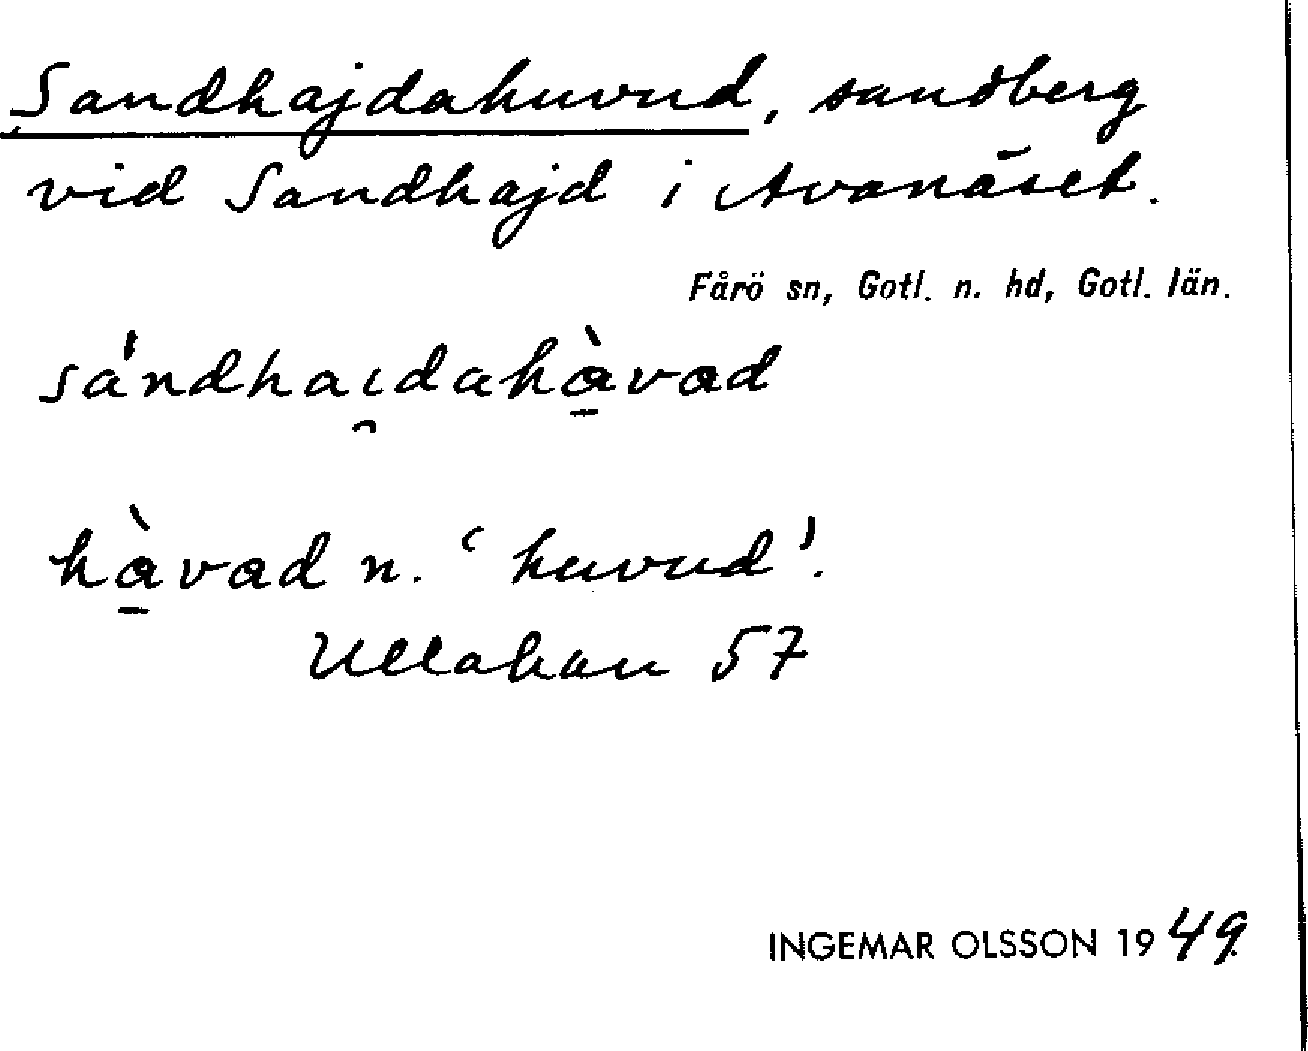 Sandhajdahuvud, sandberg
vid Sandhajd i Avanäset.
Fårö sn, Gotl. n. hd, Gotl. län.
sándhai̯dahà̱vad
hà̱vad n. ‘huvud’.
Ullahau 57
INGEMAR OLSSON 1949